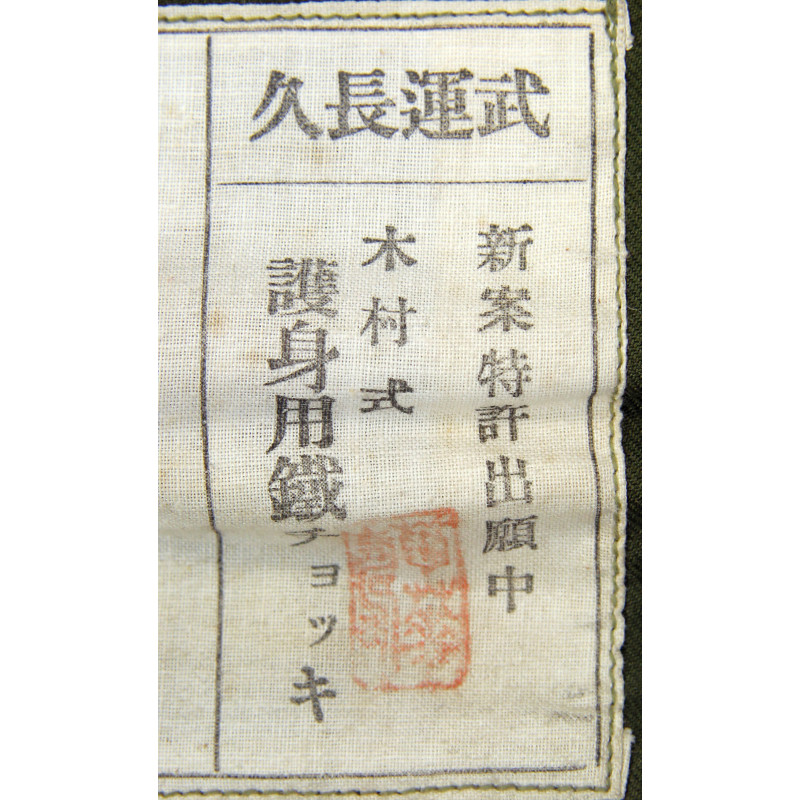 武運長久
新案特許出願中
木村式
護身用鐵チョッキ